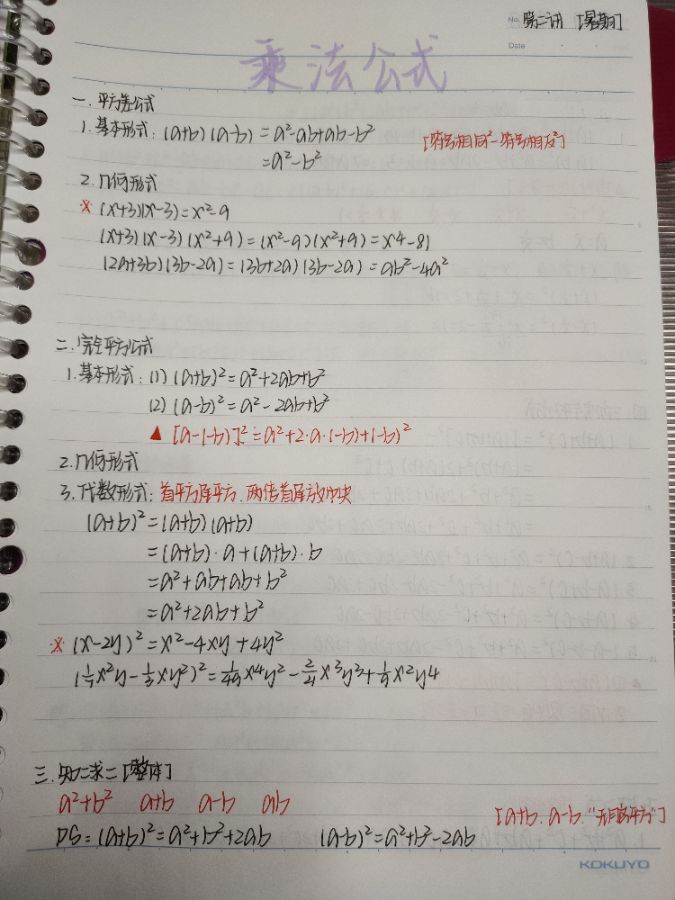 No. 第二讲 [暑期]
Date
乘法公式
一.平方差公式
1.基本形式:(a+b)(a-b)=a²-ab+ab-b² [符号相同²-符号相反²]
=a²-b²
2.几何形式
※ (x+3)(x-3)=x²-9
(x+3)(x-3)(x²+9)=(x²-9)(x²+9)=x⁴-81
(2a+3b)(3b-2a)=(3b+2a)(3b-2a)=9b²-4a²
二.完全平方公式
1.基本形式:(1)(a+b)²=a²+2ab+b²
(2)(a-b)²=a²-2ab+b²
▲ [a-(-b)]²=a²+2·a·(-b)+(-b)²
2.几何形式
3.代数形式:首平方尾平方,两倍首尾放中央
(a+b)²=(a+b)(a+b)
=(a+b)·a+(a+b)·b
=a²+ab+ab+b²
=a²+2ab+b²
※ (x-2y)²=x²-4xy+4y²
(1/7x²y-1/3xy²)²=1/49x⁴y²-2/21x³y³+1/9x²y⁴
三.知二求二[整体]
a²+b² a+b a-b ab
[a+b.a-b."
DS=(a+b)²=a²+b²+2ab (a-b)²=a²+b²-2ab
KOKUYO